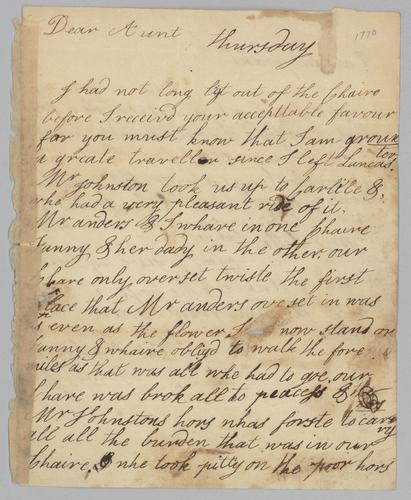 Dear Aunt
1770
Thursday
I had not long lift out of the Chaire
before I receivd your accepttable favour
for you must know that I am grown
a greate traveller since I left Lancas
ter
Mr Johnston took us up to Carlile &
whe had a very pleasant ride of it.
Mr anders & I whare in one Chaire
fanny & her dady in the other. our
Chare only over set twiste the first
place that Mr anders ove set in was
as even as the flower I now stand on
fanny & whaire obligd to walk the fore
miles as that was all whe had to goe. our
Chare was brok all to peacess &
Mr Johnstons hors nhas forste to carry
all all the burden that was in our
Chaire, & whe took pitty on the poor hors